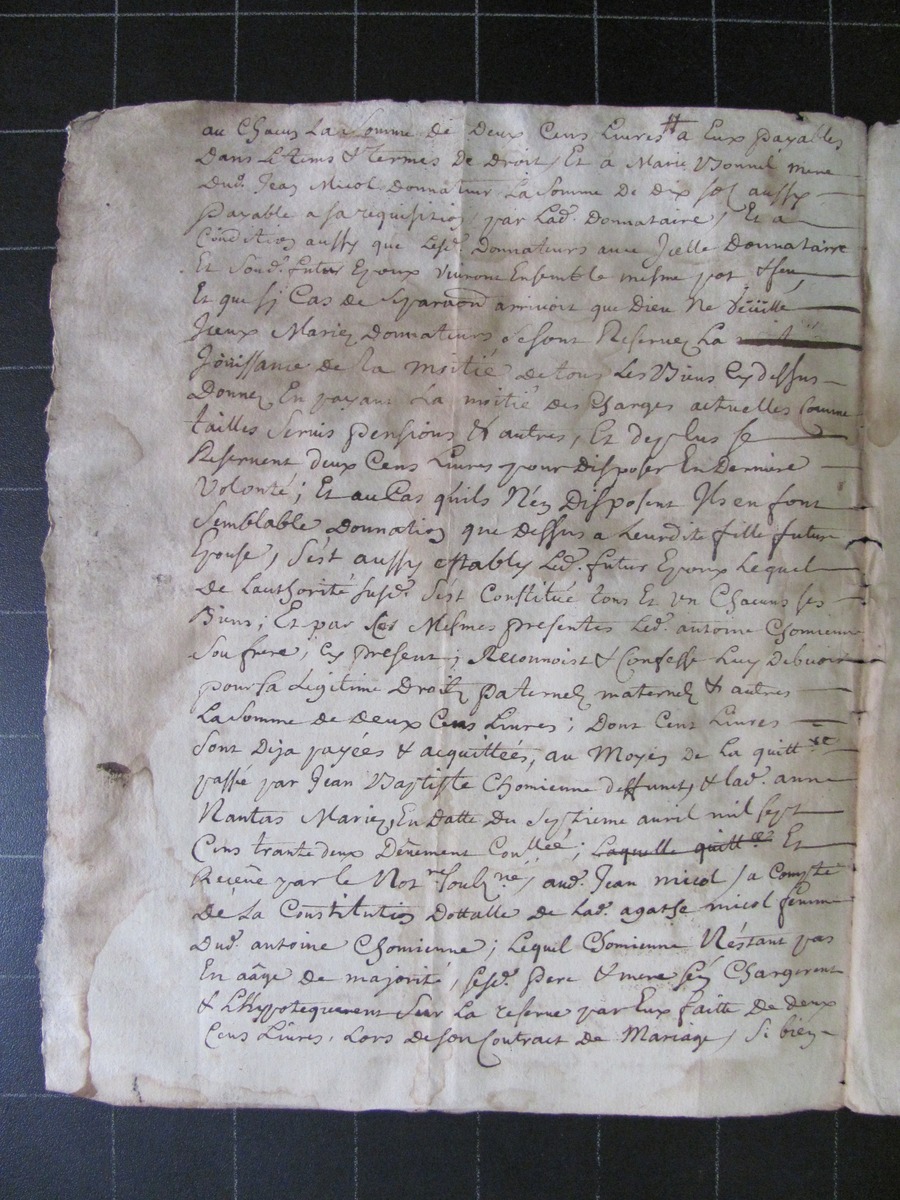 au Chacun La Somme de Deux Cens Livres ₶ a Eux payables
Dans L'Etems & termes De Droit, Et a Marie Bonnel mere
Dud. Jean Micol Donnateur La Somme De dix sol aussy
payable a sa requisition, par Lad. Donnataire, Et a
Condition aussy que Lesd. Donnateurs avec Jcelle Donnataire
Et Sond. futur Epoux vivront Ensemble mesme pot & feu
Et que sy Cas de Separaon arrivoit que Dieu Ne Veüille
Jceux Mariez Donnateurs se sont Reservez La
Joüissance de la Moitié de tous Les Biens Cy dessus
Donnez En payant La moitié des Charges actuelles Comme
tailles Servis pensions & autres, Et de plus se
Reservent deux Cens Livres pour Disposer En Derniere
Volonté; Et au Cas quils N'en Disposent Ils en font
Semblable Donnation que Dessus a Leurdite fille future
Epouse, S'est aussy establi Led. futur Epoux Lequel
De Lauthorité susd. S'est Constitué tous Et un Chacuns ses
Biens; Et par Ses Mesmes presentes Led. antoine Chomienne
Son frere, Cy present, Reconnoist & Confesse Luy Debvoir
pour sa Legitime Droits paternels maternels & autres
La Somme de Deux Cens Livres; Dont Cent Livres
Sont Deja payées & acquittées, au Moyen de La quittce
passé par Jean Baptiste Chomienne deffunt, & lad. anne
Nantas Mariez, En Datte Du Septieme avril mil sept
Cens trante deux Dêuement Conllée; Laquelle quittce Et
Reçeüe par le Notre Soulzné, aud. Jean micol, a Compte
De La Constitution Dottalle de Lad. agathe micol femme
Dud. antoine Chomienne; Lequel Chomienne N'estant pas
En aâge de majorité, sesd. pere & mere s'en Chargerent
& L'hypotequerent Sur La reserve par Eux faitte de deux
Cens Livres, Lors de son Contrait de Mariage, Si bien